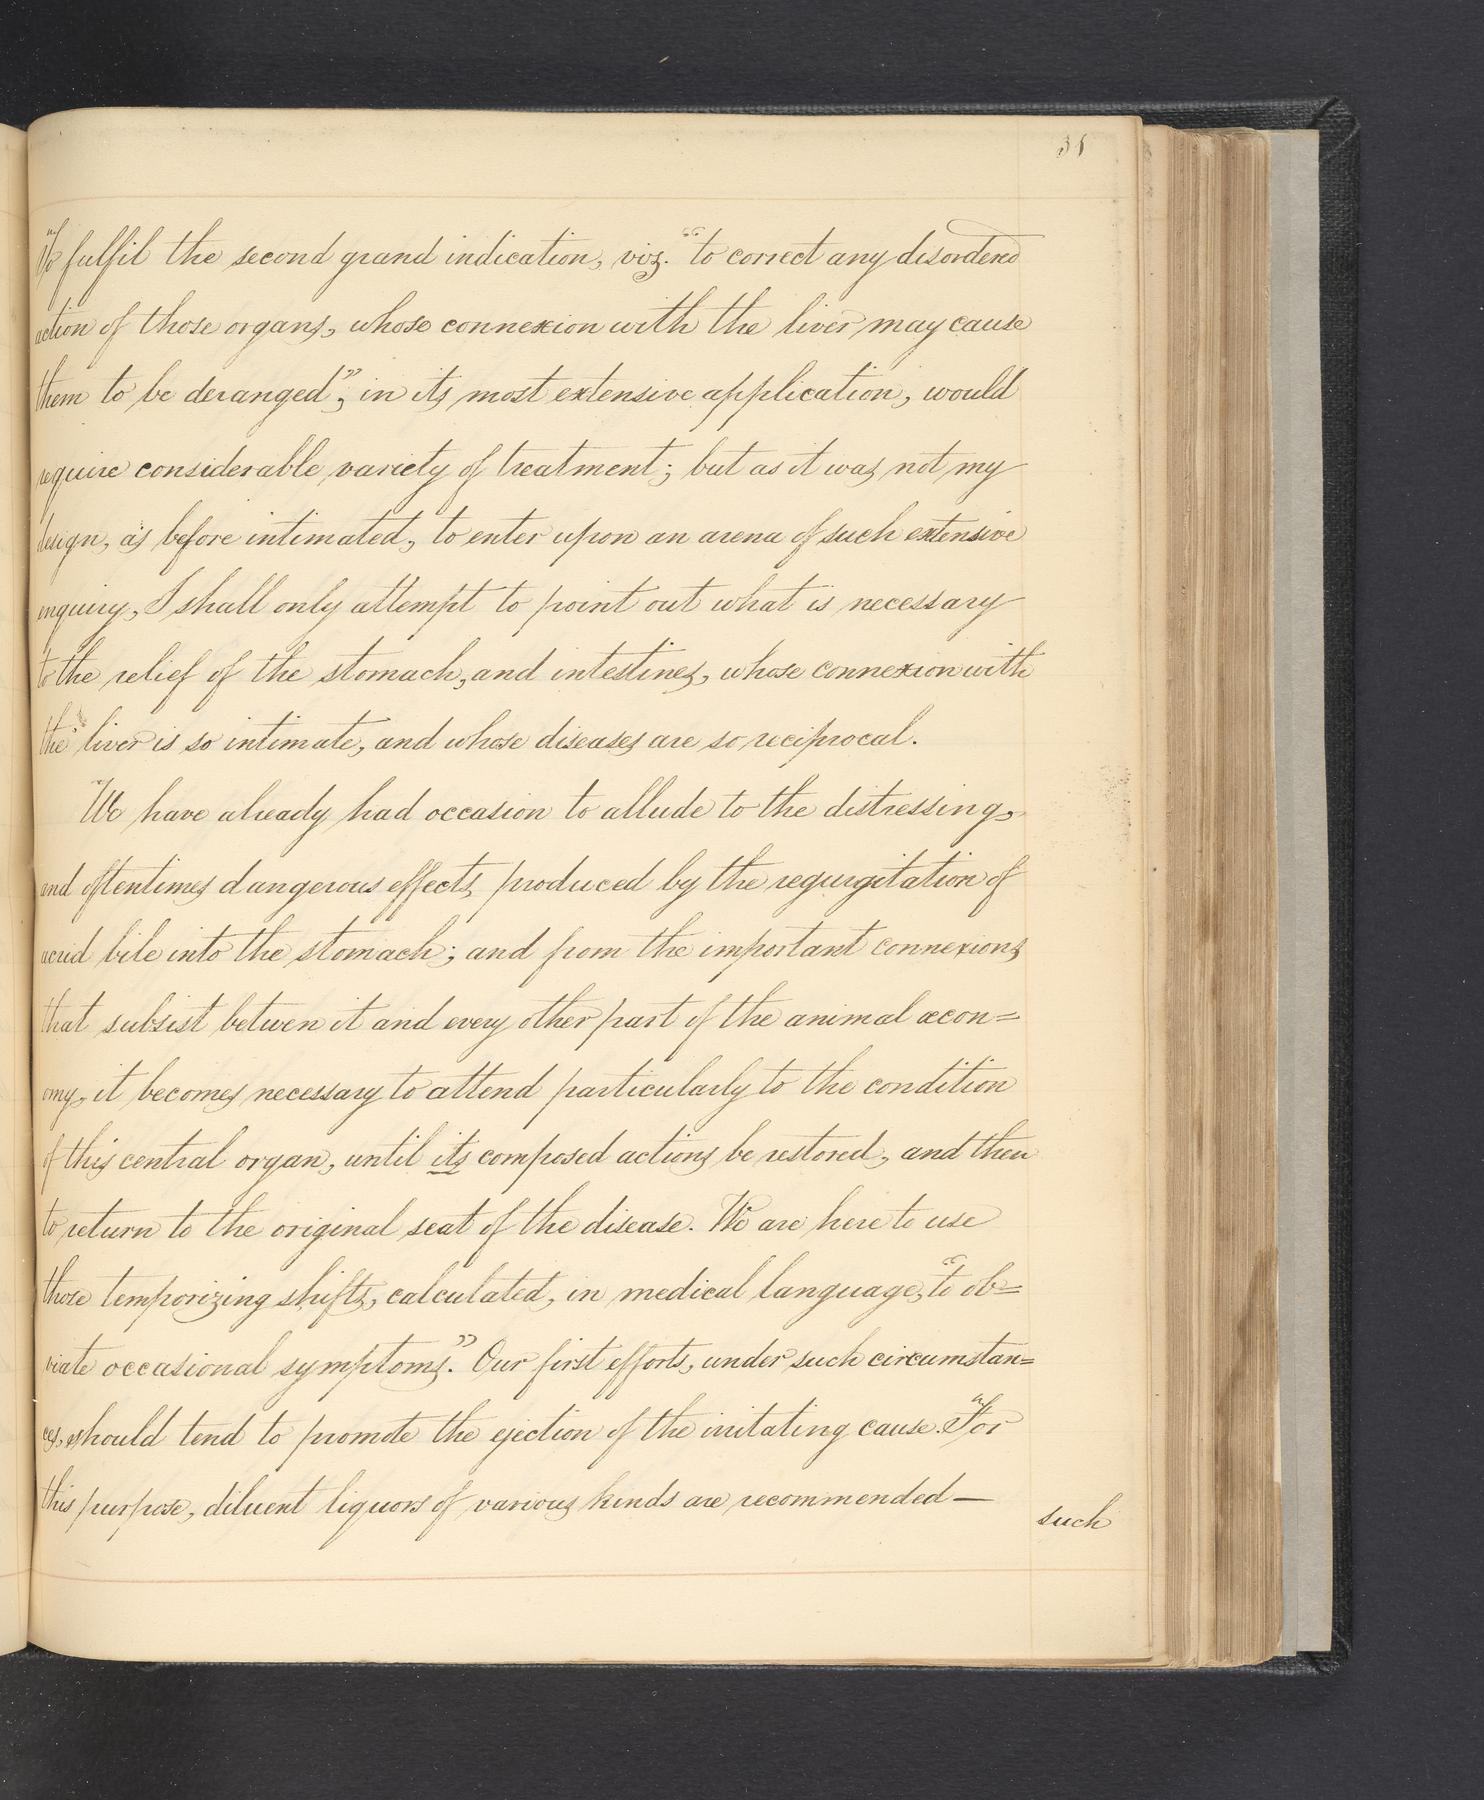 35
To fulfil the second grand indication, viz. "to correct any disordered
action of those organs, whose connexion with the liver may cause
them to be deranged"; in its most extensive application, would
require considerable variety of treatment; but as it was not my
design, as before intimated, to enter upon an arena of such extensive
inquiry, I shall only attempt to point out what is necessary
to the relief of the stomach, and intestines, whose connexion with
the liver is so intimate, and whose diseases are so reciprocal.
We have already had occasion to allude to the distressing,
and oftentimes dangerous effects, produced by the regurgitation of
acrid bile into the stomach; and from the important connexions
that subsist betwen it and every other part of the animal œcon=
omy, it becomes necessary to attend particularly to the condition
of this central organ, until its composed actions be restored, and then
to return to the original seat of the disease. We are here to use
those temporizing shifts, calculated, in medical language, "to ob=
viate occasional symptoms." Our first efforts, under such circumstan=
ces, should tend to promote the ejection of the irritating cause. For
this purpose, diluent liquors of various kinds are recommended —
such